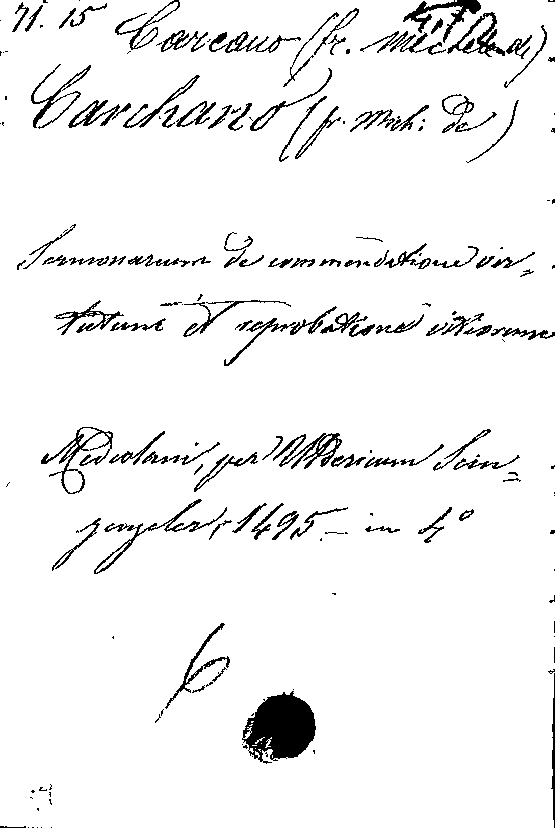 71. 15
Carcano (fr. Michele di)
Carchano (fr. Mich: de)
Sermonarium de commendatione vir=
tutum et reprobatione vitiorum
Mediolani, per Uldericum Scin=
zenzeler, 1495 - in 4º